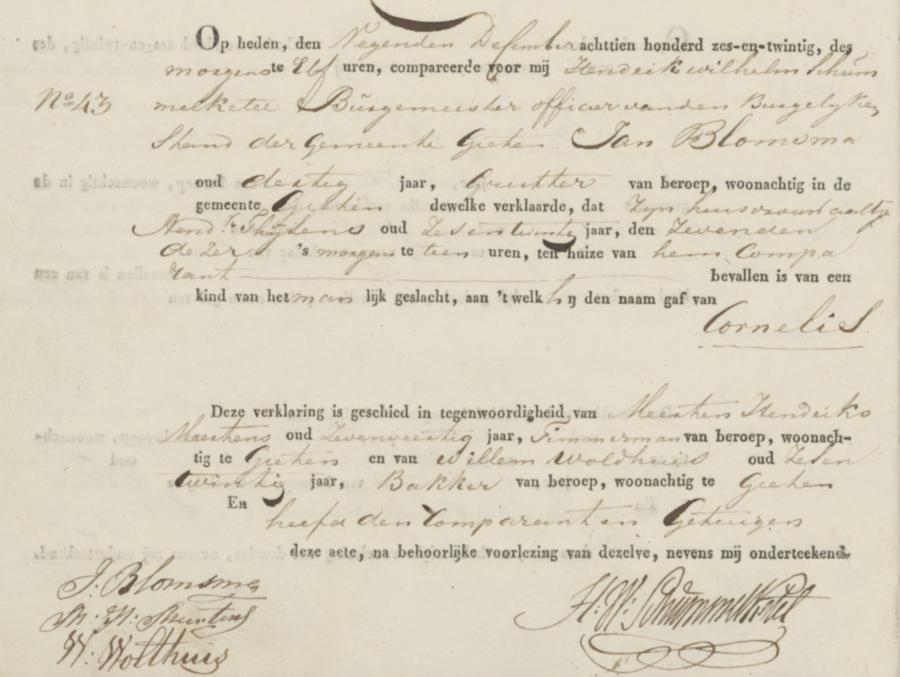 Op heden, den Negenden Desember achttien honderd zes-en-twintig, des
morgens te Elf uren, compareerde voor mij Hendrik wilhelm Schum
No 43 melketee Burgemeister officier van den Burgelyken
Stand der Gemeente Gieten Jan Blomsma
oud dertig jaar, Grutter van beroep, woonachtig in de
gemeente Gieten dewelke verklaarde, dat zyn huisvrouw aaltje
Hend. Thijsens oud Zesentwintig jaar, den Zevenden
dezer 's morgens te tien uren, ten huize van hem Compa
rant bevallen is van een
kind van het man lijk geslacht, aan 't welk hij den naam gaf van
Cornelis
Deze verklaring is geschied in tegenwoordigheid van Meerten Hendriks
Meertens oud Zevenveertig jaar, Timmerman van beroep, woonach-
tig te Gieten en van Willem Woldhuis oud Zesen
twintig jaar, Bakker van beroep, woonachtig te Gieten
En
heefd den Comparant en Getuigen
deze acte, na behoorlijke voorlezing van dezelve, nevens mij onderteekend
J: Blomsma
M: H: Meertens
W: Wolthuis
H: W: Schummelketel